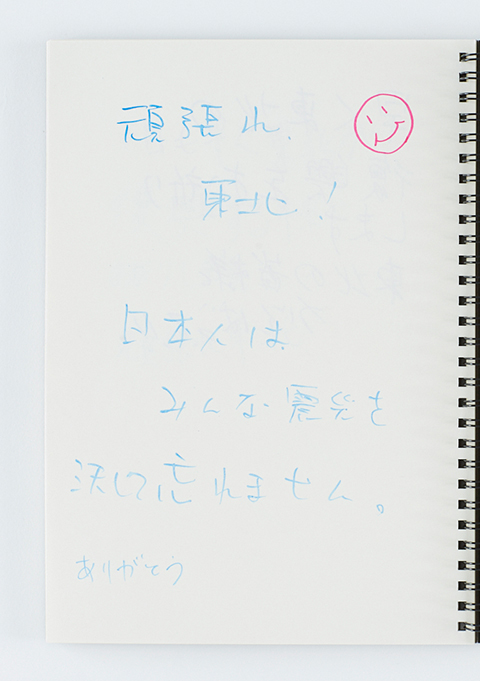 頑張れ、
東北！
日本人は、
みんな震災を
決して忘れません。
ありがとう